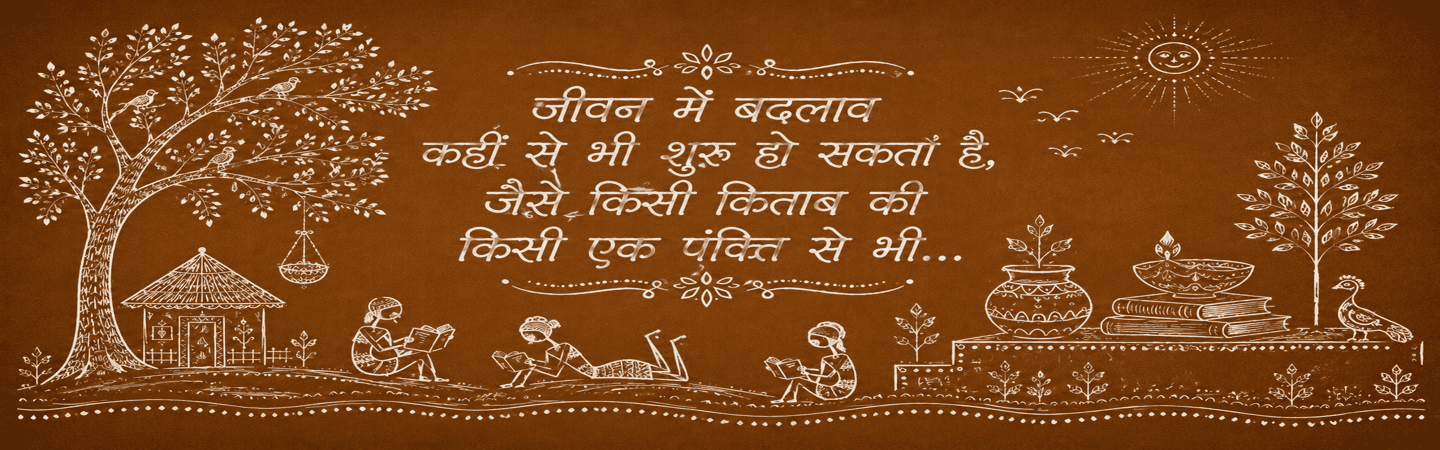 जीवन में बदलाव
कहीं से भी शुरू हो सकता है,
जैसे किसी किताब की
किसी एक पंक्ति से भी...